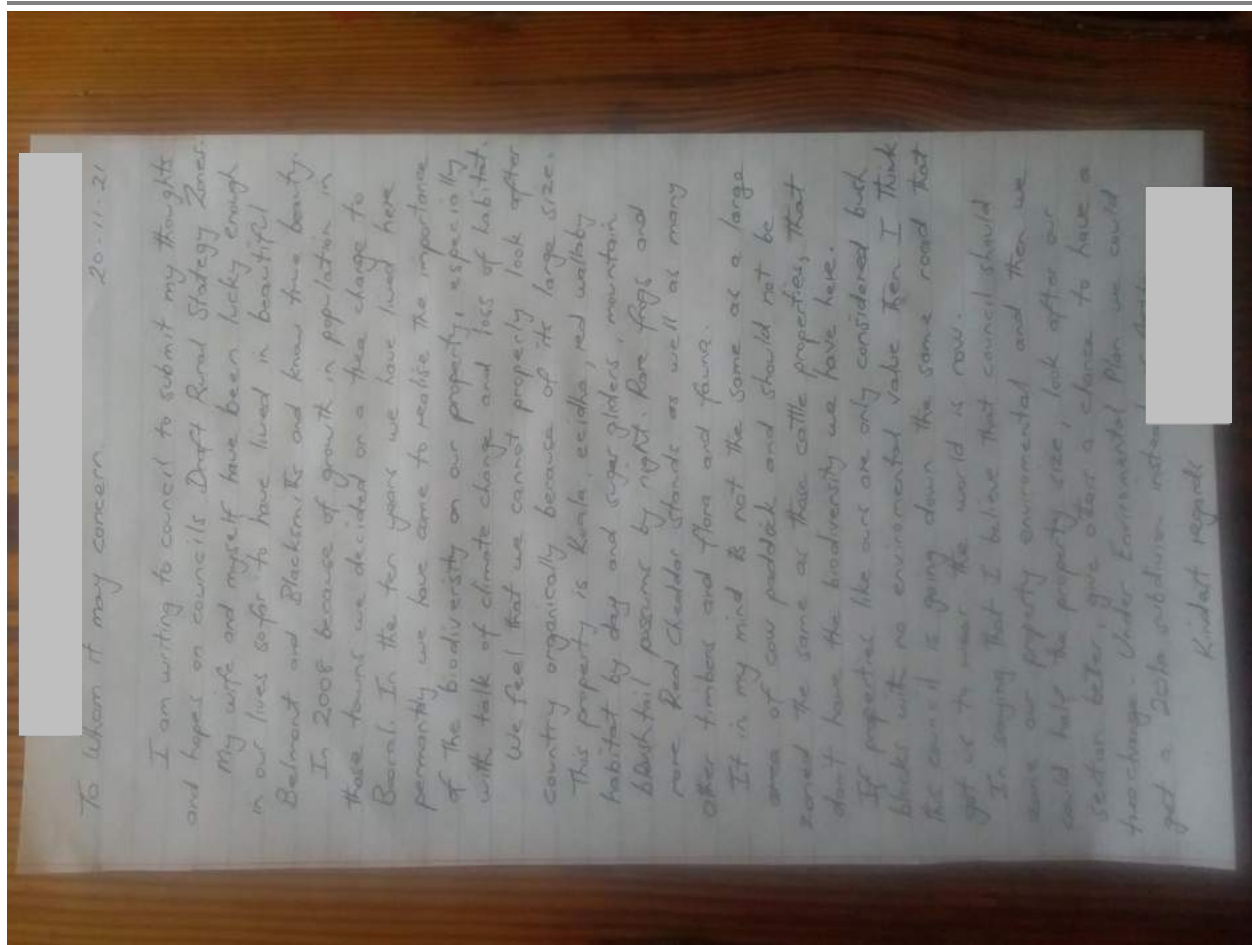 To Whom it may concern 20-11-21
I am writing to council to submit my thoughts
and hopes on councils Draft Rural Stategy Zones.
My wife and myself have been lucky enough
in our lives sofar to have lived in beautiful
Belmont and Blacksmiths and know true beauty.
In 2008 because of growth in population in
those towns we decided on a tree change to
Booral. In the ten years we have lived here
permantly we have come to realise the importance
of the biodiversity on our property, especially
with talk of climate change and loss of habitat.
We feel that we cannot properly look after
country organically because of its large size.
This property is Koala, ecidha, red wallaby
habitat by day and suger gliders, mountain
brushtail possums by night. Rare frogs and
more. Red Cheddar stands as well as many
other timbers and flora and fauna.
It in my mind is not the same as a large
area of cow paddock and should not be
zoned the same as those cattle properties, that
dont have the biodiversity we have here.
If properties like ours are only considered bush
blocks with no enviromental value then I think
this council is going down the same road that
got us to wear the world is now.
In saying that I believe that council should
zone our property enviromental and then we
could half the property size, look after our
section better, give others a chance to have a
treechange. Under Enviromental Plan we could
get a 20ha subdivion
Kindest regards